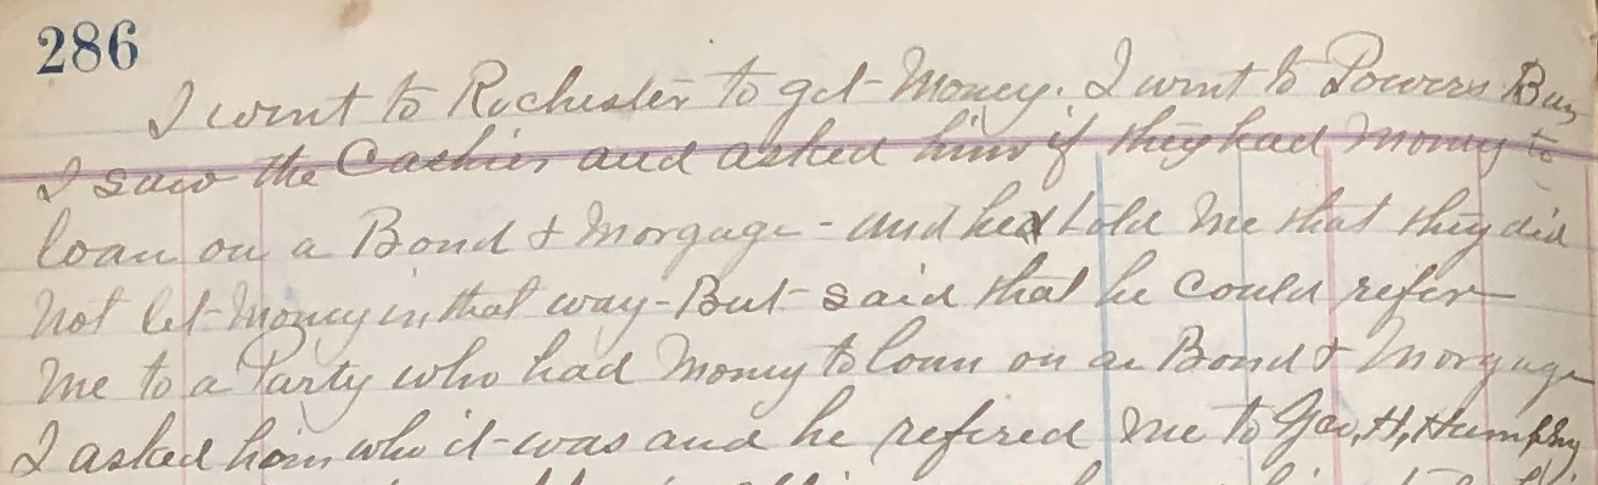 286
I went to Rochester to get Money. I went to Powers
I saw the Cashier and asked him if they had Money to
loan on a Bond & Morgage - and he told Me that they did
Not let Money in that way - But said that he could refer
Me to a Party who had Money to loan on a Bond & Morgage
I asked him who it was and he refered Me to Geo, H, Humphry